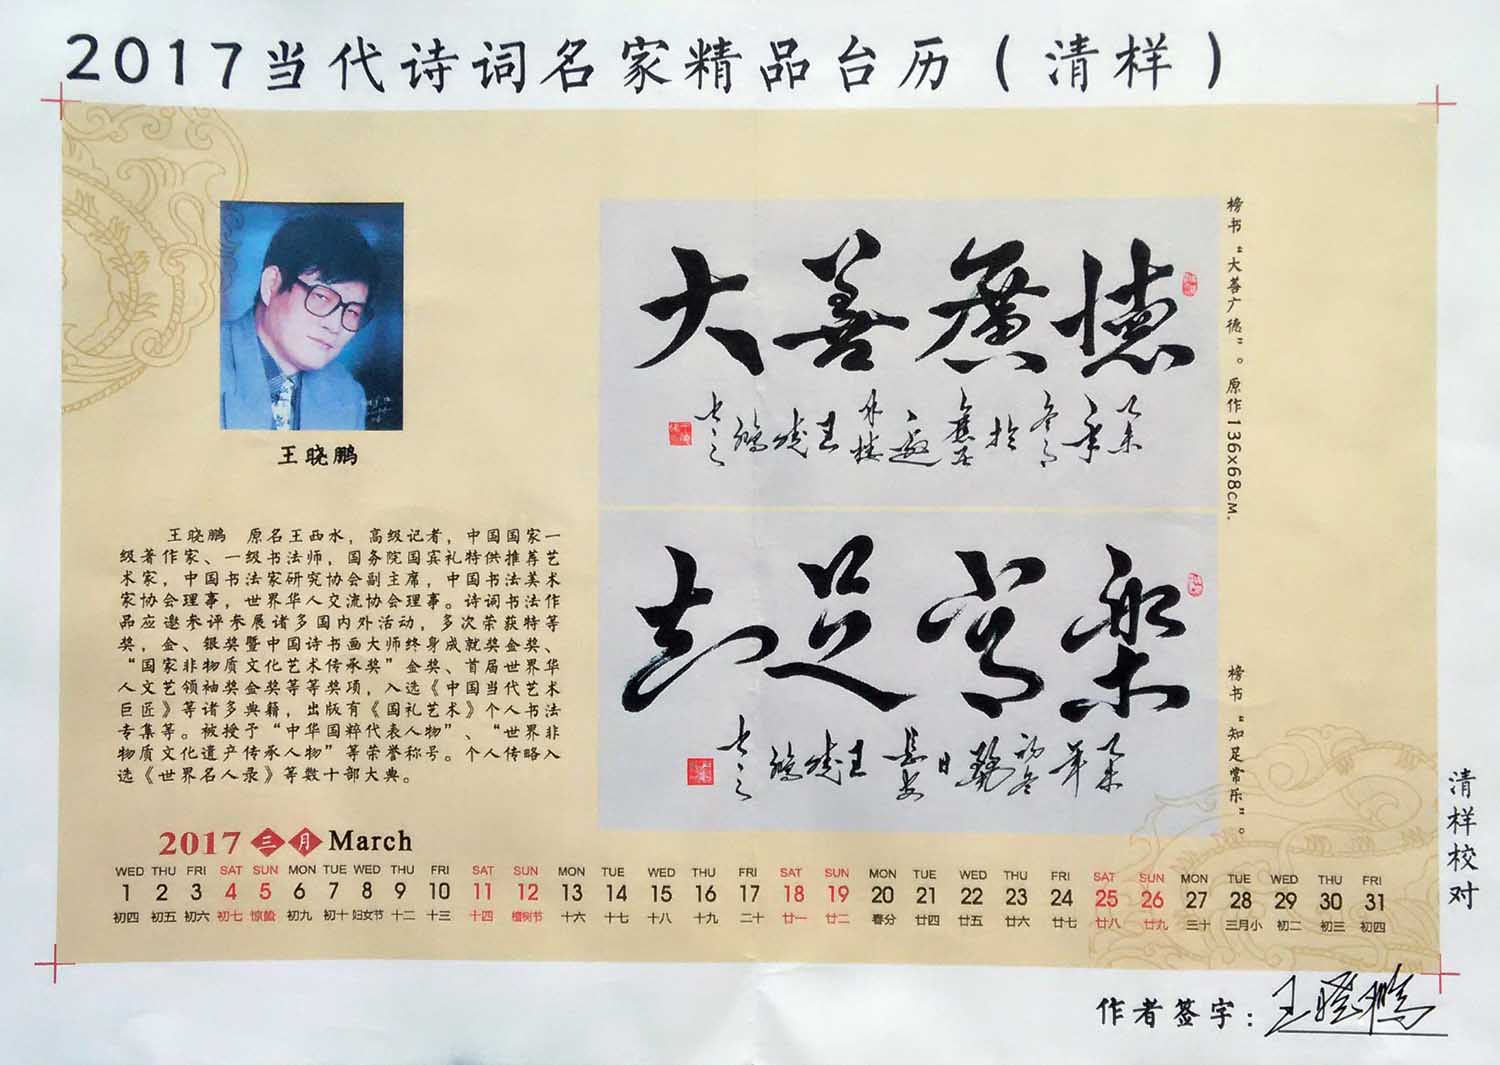 2017当代诗词名家精品台历(清样)
王晓鹏
王晓鹏 原名王西水，高级记者，中国国家一
级著作家、一级书法师，国务院国宾礼特供推荐艺
术家，中国书法家研究协会副主席，中国书法美术
家协会理事，世界华人交流协会理事。诗词书法作
品应邀参评参展诸多国内外活动，多次荣获特等
奖，金、银奖暨中国诗书画大师终身成就奖金奖、
“国家非物质文化艺术传承奖”金奖、首届世界华
人文艺领袖奖金奖等等奖项，入选《中国当代艺术
巨匠》等诸多典籍，出版有《国礼艺术》个人书法
专集等。被授予“中华国粹代表人物”、“世界非
物质文化遗产传承人物”等荣誉称号。个人传略入
选《世界名人录》等数十部大典。
大善廣德
榜书“大善广德”。原作136x68CM.
知足常樂
榜书“知足常乐”。
2017 三月 March
WED THU FRI SAT SUN MON TUE WED THU FRI SAT SUN MON TUE WED THU FRI SAT SUN MON TUE WED THU FRI SAT SUN MON TUE WED THU FRI
1 2 3 4 5 6 7 8 9 10 11 12 13 14 15 16 17 18 19 20 21 22 23 24 25 26 27 28 29 30 31
初四 初五 初六 初七 惊蛰 初九 初十 妇女节 十二 十三 十四 植树节 十六 十七 十八 十九 二十 廿一 廿二 春分 廿四 廿五 廿六 廿七 廿八 廿九 三十 三月小 初二 初三 初四
清样校对
作者签字：王晓鹏